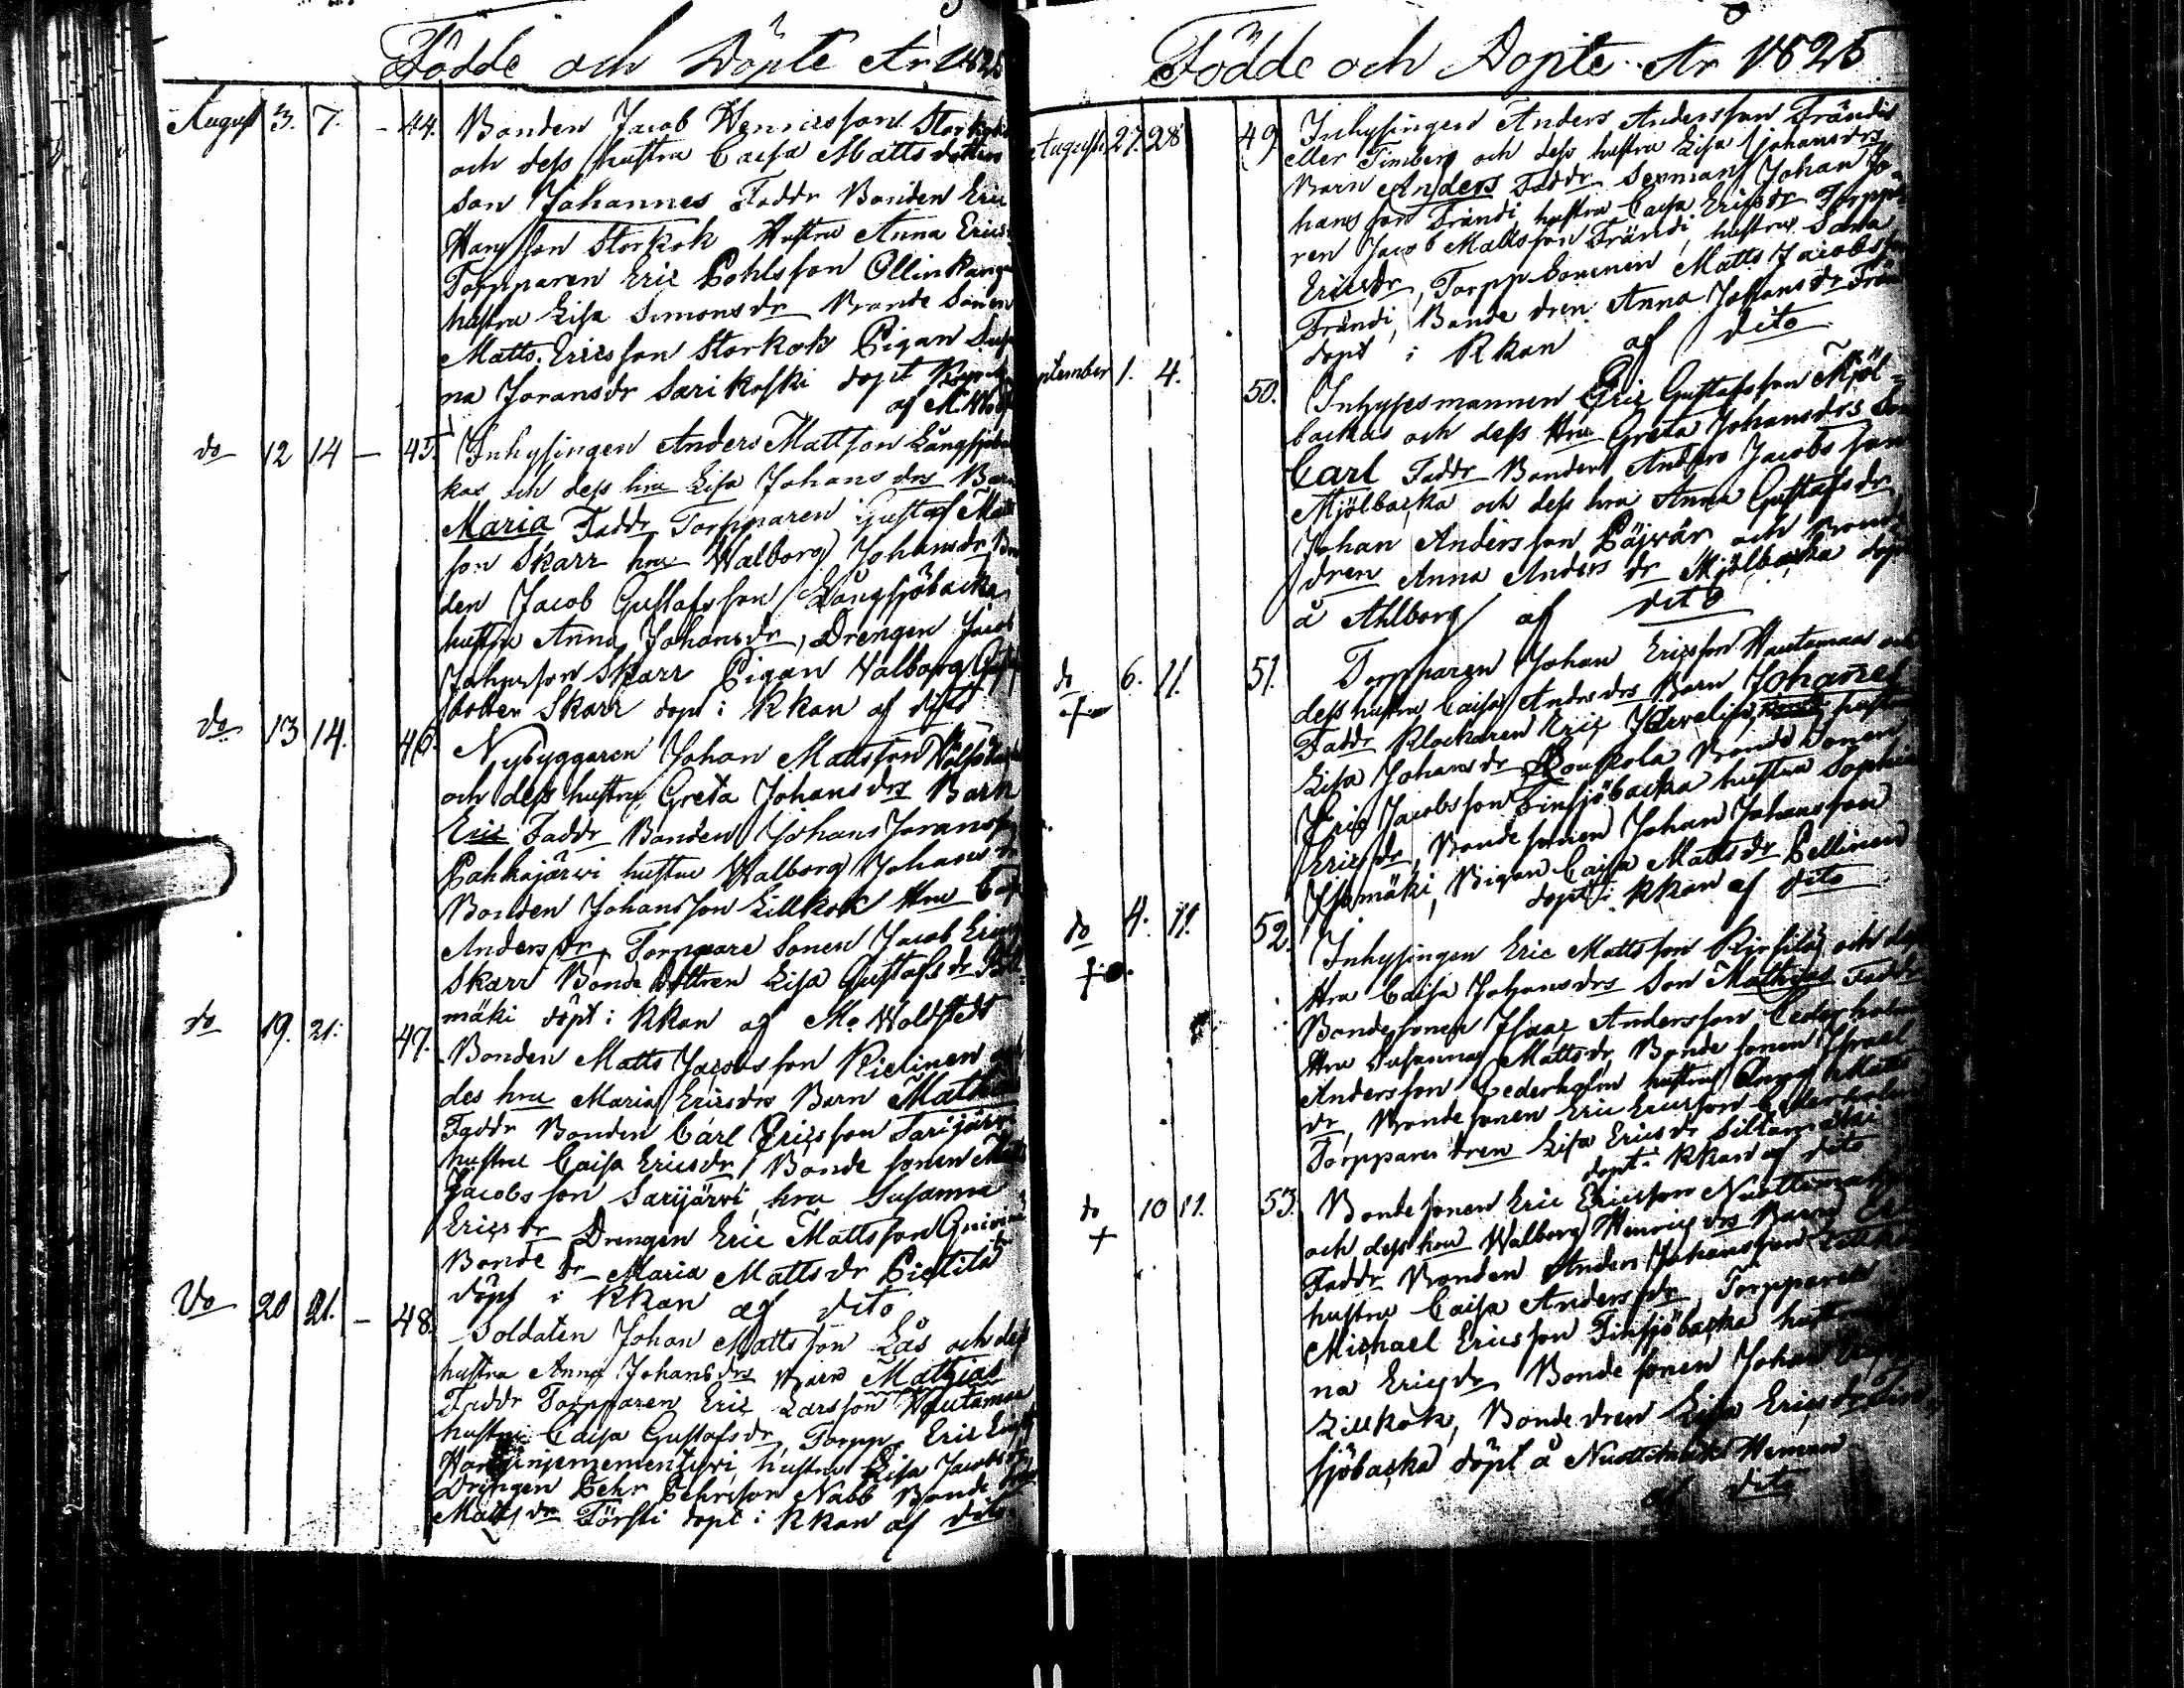 Födde och Döpte År 1825
August 3. 7. - 44. Bonden Jacob Henricsson Storkok
och dess hustru Caisa Matts dotters
Son Johannes Faddr Bonden Eric
Hansson Storkok Hustru Anna Erics
Torpparen Eric Pohlsson Ollinkangas
hustru Lisa Simonsdr Bonde Sonen
Matts Ericsson Storkok Pigan
na Joransdr Sarikoski döpt
af M.
do 12 14 - 45. Inhysingen Anders Mattson Långsjöbac
kas och dess hru Lisa Johansdrs Barn
Maria Faddr Torpparen Gustaf Matts
son Skarr hru Walborg Johansdr Bon
den Jacob Gustafsson Långsjöbacka
hustru Anna Johansdr, Drengen Jacob
Johansson Skarr Pigan Valborg
dotter Skarr döpt i Kkan af dito
do 13 14. 46. Nybyggaren Johan Mattsson
och dess hustru Greta Johansdrs Barn
Eric Faddr Bonden Johans Joransson
Pahkajärwi hustru Walborg Johansdr
Bonden Johansson Lillkok Hru Caisa
Andersdr, Torppare Sonen Jacob Erics
Skarr Bonde Dottren Lisa Gustafsdr
mäki döpt i Kkan af Mr Woldstedt
do 19. 21. 47. Bonden Matts Jacobsson Pielinen och
des hru Maria Ericsdrs Barn Mathias
Faddr Bonden Carl Ericsson Sarijärwi
hustru Caisa Ericsdr, Bonde sonen Matts
Jacobsson Sarijärwi hru Susanna
Ericsdr Drengen Eric Mattsson
Bonde dr Maria Mattsdr Pietilä
döpt i Kkan af dito
Do 20 21. - 48. Soldaten Johan Mattsson Lås och dess
hustru Anna Johansdrs Barn Mathias
Faddr Torpparen Eric Larsson Hautamaa
hustru Caisa Gustafsdr Torpp. Eric
hustru Lisa Jacobsdr
Drengen Pehr Pehrsson Nabb Bonde
Mattsdr Försti döpt i Kkan af dito
Födde och Döpte År 1825
Augusti 27. 28 49. Inhysingen Anders Andersson Frändis
eller Timberg och dess hustru Lisa Johansdrs
Barn Anders Faddr Sexman Johan Jo
hansson Frändi, hustru Caisa Ericsdr Torppa
ren Jacob Mattsson Frändi, hustru Sanna
Ericsdr, Torpp Sonen Matts Jacobsson
Frändi, Bonde dren Anna Johansdr Frän
döpt i Kkan af dito
ptember 1. 4. 50. Inhysesmannen Eric Gustafsson Mjöl-
backas och dess Hru Greta Johansdrs Son
Carl Faddr Bonden Anders Jacobsson
Mjölbacka och dess hru Anna Gustafsdr
Johan Andersson Päiwär och Bonde
dren Anna Andersdr Mjölbacka döpt
å Ahlborg af dito
do 6. 11. 51. Torpparen Johan Ericsson Hautamaas och
dess hustru Caisa Andersdrs Barn Johannes
Faddr Klockaren Eric Järwelin, hustru
Lisa Johansdr Koukola Bonde Sonen
Eric Jacobsson Finsjöbacka hustru Sophia
Ericsdr, Bonde sonen Johan Johansson
Isomäki, Pigan Caisa Mattsdr Pellinen
döpt i kkan af dito
do 4. 11. 52. Inhysingen Eric Mattsson Kirsilä och dess
Hru Caisa Johansdrs Son Mathias Faddr
Bondesonen Isaac Andersson Cederholm
Hru Susanna Mattsdr, Bonde sonen Israel
Andersson Cederholm hustru Anna Matts
dr, Bonde sonen Eric Ericsson Cederholm
Torppares dren Lisa Ericsdr Siltamäki
döpt i Kkan af dito
do 10 11. 53. Bonde sonen Eric Ericsson Nuottimäki
och dess hru Walborg Henricsdrs Barn Eric
Faddr Bonden Anders Johansson Lillkok
hustru Caisa Andersdr, Torpparen
Michael Ericsson Finsjöbacka hustru
na Ericsdr Bonde sonen Johan
Lillkok, Bonde dren Lisa Ericsdr
sjöbacka döpt å Nuottimäki Heman
af dito